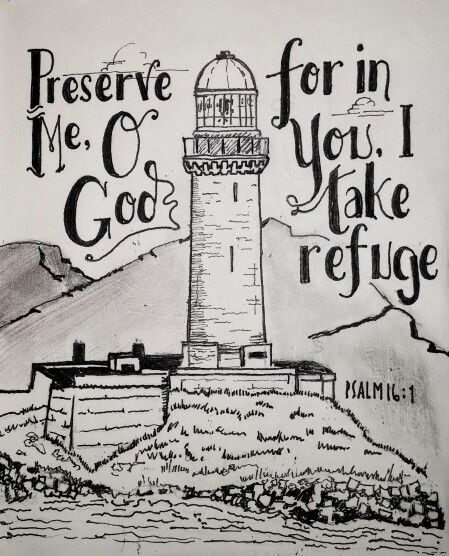 Preserve
Me, O
God
for in
You, I
take
refuge
PSALM 16:1